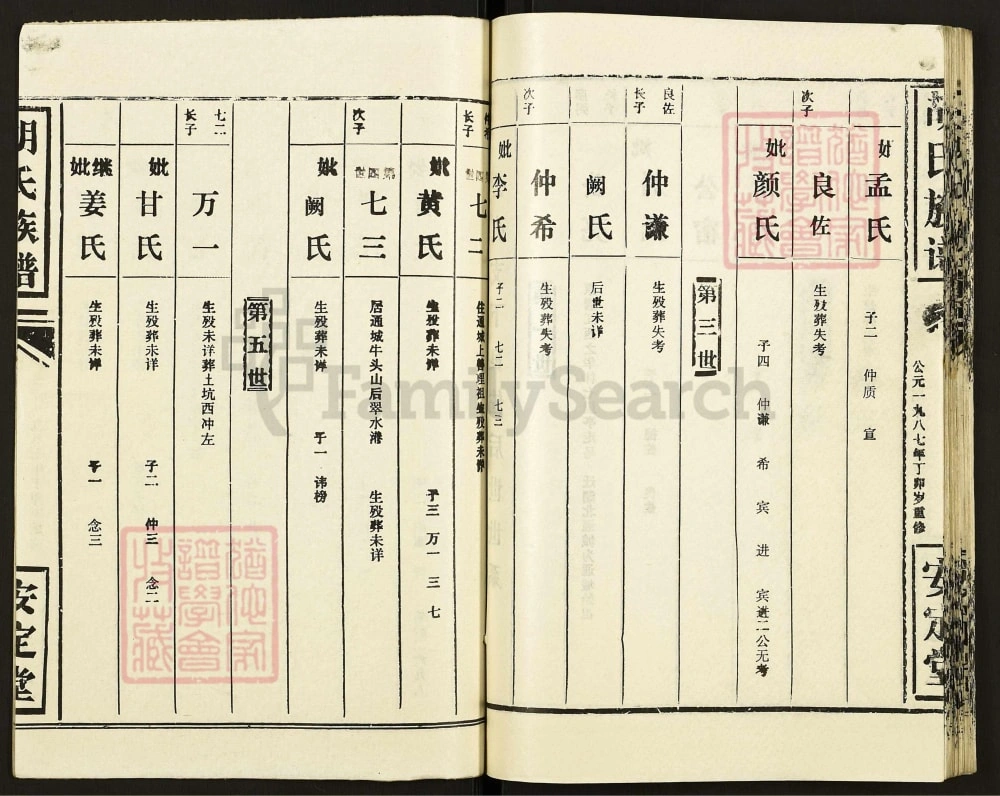 胡氏族谱
公元一九八七年丁卯岁重修
安定堂
妣 孟氏 子二 仲质 宣
次子 良佐 生殁葬失考
妣 颜氏 子四 仲谦 希 宾 进 宾进二公无考
第三世
良佐长子 仲谦 生殁葬失考
阙氏 后世未详
次子 仲希 生殁葬失考
妣 李氏 子二 七二 七三
长子 第四世 七二 住通城上善理祖生殁葬未详
妣 黄氏 生殁葬未详 子三 万一 三 七
次子 第四世 七三 居通城牛头山后翠水港 生殁葬未详
妣 阙氏 生殁葬未详 子一 讳榜
第五世
七二长子 万一 生殁未详葬土坑西冲左
妣 甘氏 生殁葬未详 子二 仲三 念二
继妣 姜氏 生殁葬未详 子一 念三
胡氏族谱
安定堂
FamilySearch